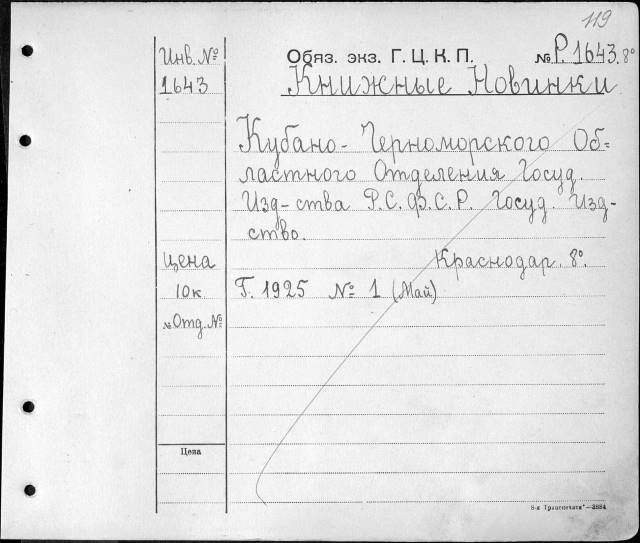 119
Инв. №
1643
Обяз. экз. Г. Ц. К. П. № Р. 1643. 8°
Книжные Новинки
Кубано-Черноморского Об=
ластного Отделения Госуд.
Изд-ства Р.С.Ф.С.Р. Госуд. Изд-
ство.
Краснодар. 8°.
Цена
10 к.
Г. 1925 № 1 (Май)
№ Отд. №
Цена
8-я Транспечать"—3884